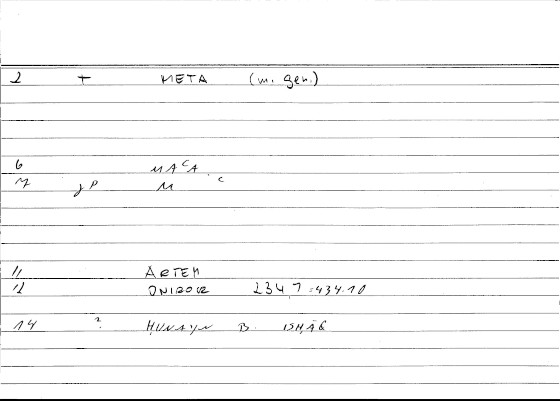 2 + META (m. gen.)
6 MACA
7 γρ M . c
11 ARTEM
12 ONIROCR 234,7 = 434.10
14 ? ḤUNAYN B. ISḤĀQ